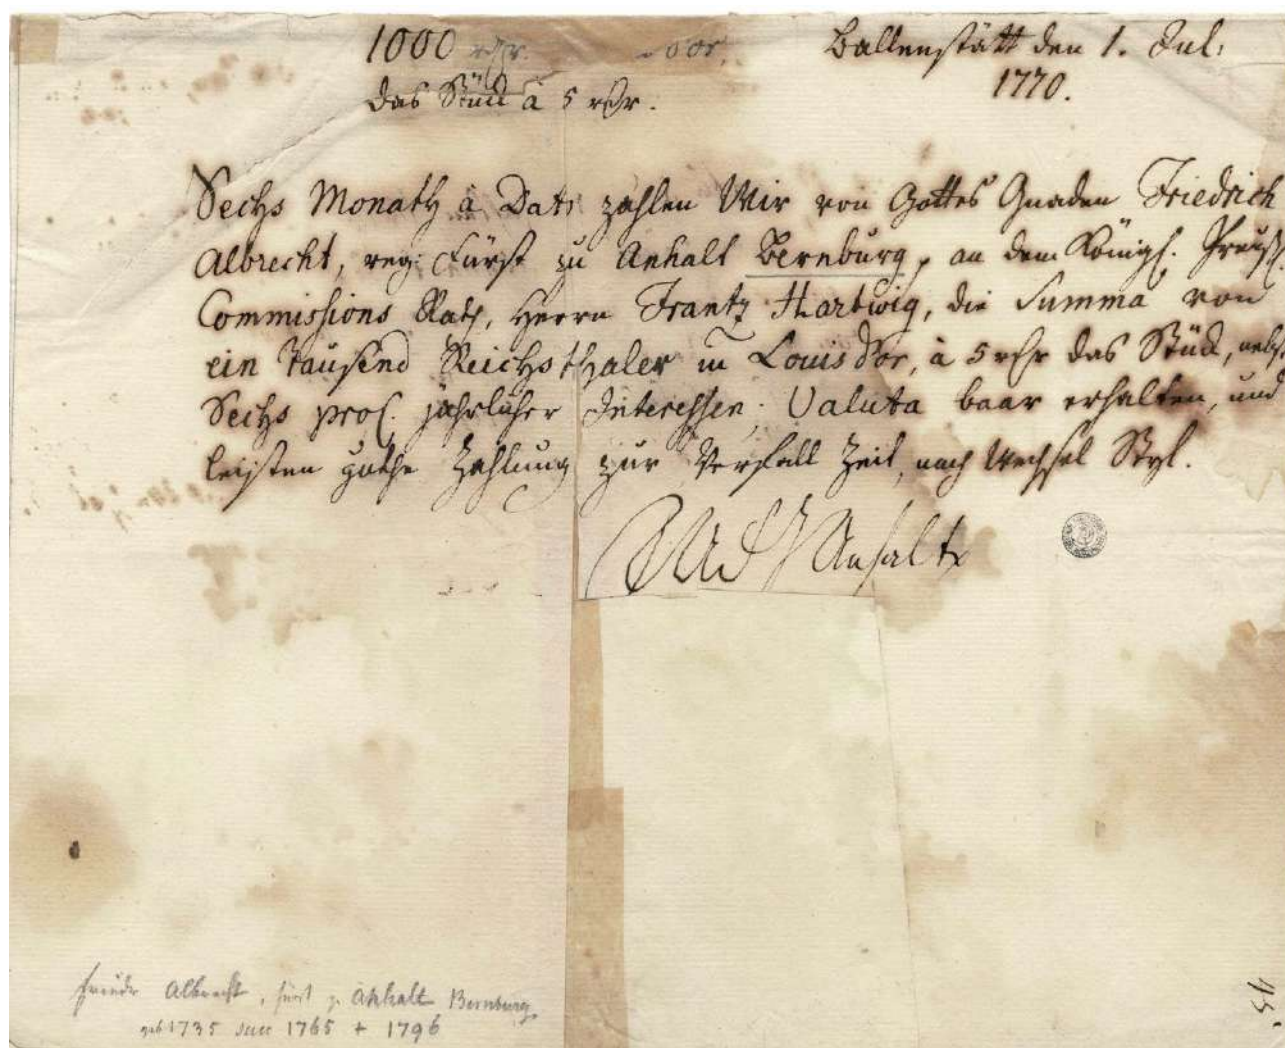 1000 rthr. d'or,
das Stück à 5 rthr.
Ballenstätt den 1. Jul:
1770.
Sechs Monath à Dato zahlen Wir von Gottes Gnaden Friedrich
Albrecht, reg: Fürst zu Anhalt Bernburg, an dem Königl. Preuß.
Commissions Rath, Herrn Frantz Hartwig, die Summa von
ein Tausend Reichsthaler in Louis d'or, à 5 rthr das Stück, nebst
Sechs proC. jährlicher Interessen; Valuta baar erhalten, und
leisten guthe Zahlung zur Verfall Zeit, nach Wechsel Styl.
Anhalt
Friedr Albrecht, Fürst z. Anhalt Bernburg
geb 1735 succ 1765 + 1796